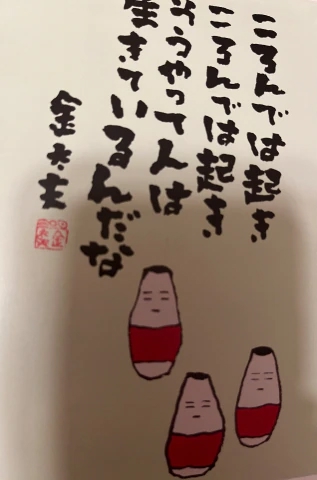 ころんでは起き
ころんでは起き
そうやって人は
生きているんだな
金太夫